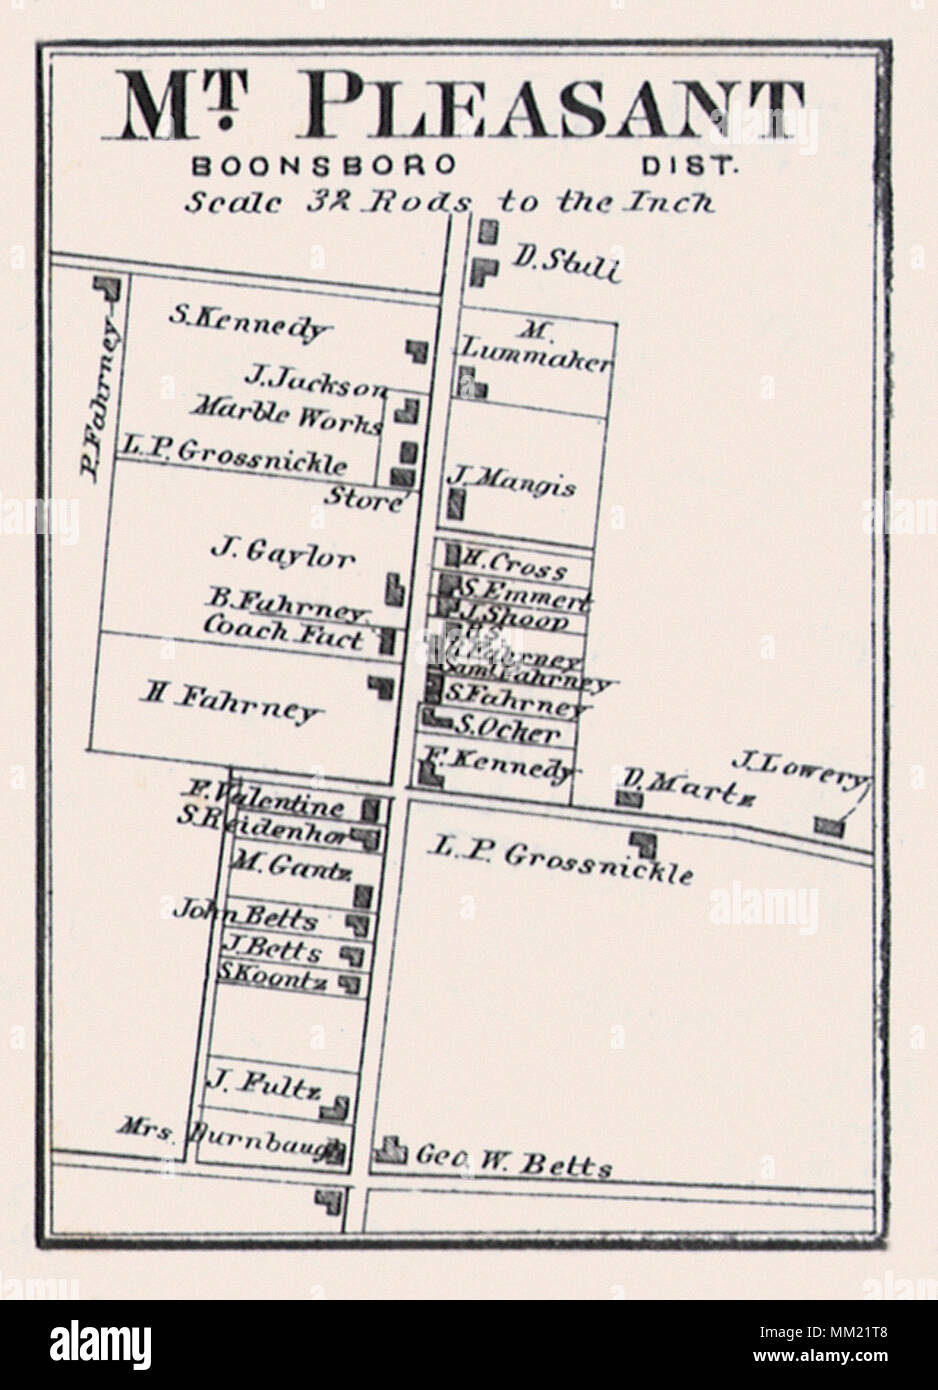 MT. PLEASANT
BOONSBORO DIST.
Scale 32 Rods to the Inch
D. Stull
P. Fahrney
S. Kennedy
M.
Lummaker
J. Jackson
Marble Works
L. P. Grossnickle
Store
J. Mangis
J. Gaylor
H. Cross
S. Emmert
J. Shoop
B. Fahrney
Coach Fact
Fahrney
Saml Fahrney
H Fahrney
S. Fahrney
S. Ocker
F. Kennedy
D. Martz
J. Lowery
F. Valentine
S. Reidenhor
L. P. Grossnickle
M. Gantz
John Betts
J. Betts
S. Koontz
J. Fultz
Mrs. Durnbaugh
Geo. W. Betts
alamy
Image ID: MM21T8
www.alamy.com